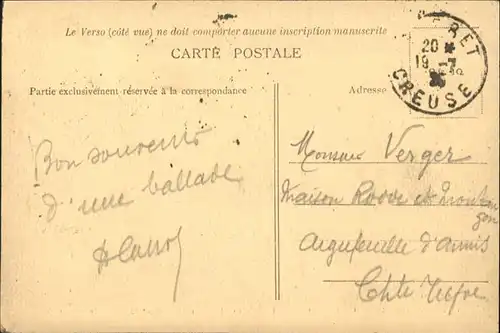 Le Verso (côté vue) ne doit comporter aucune inscription manuscrite
CARTE POSTALE
Partie exclusivement réservée à la correspondance
Adresse
20
19 -7
CREUSE
Bon souvenir
d'une ballade
Monsieur Verger
Maison Roove et
Aigrefeuille d'Aunis
Chte Infre